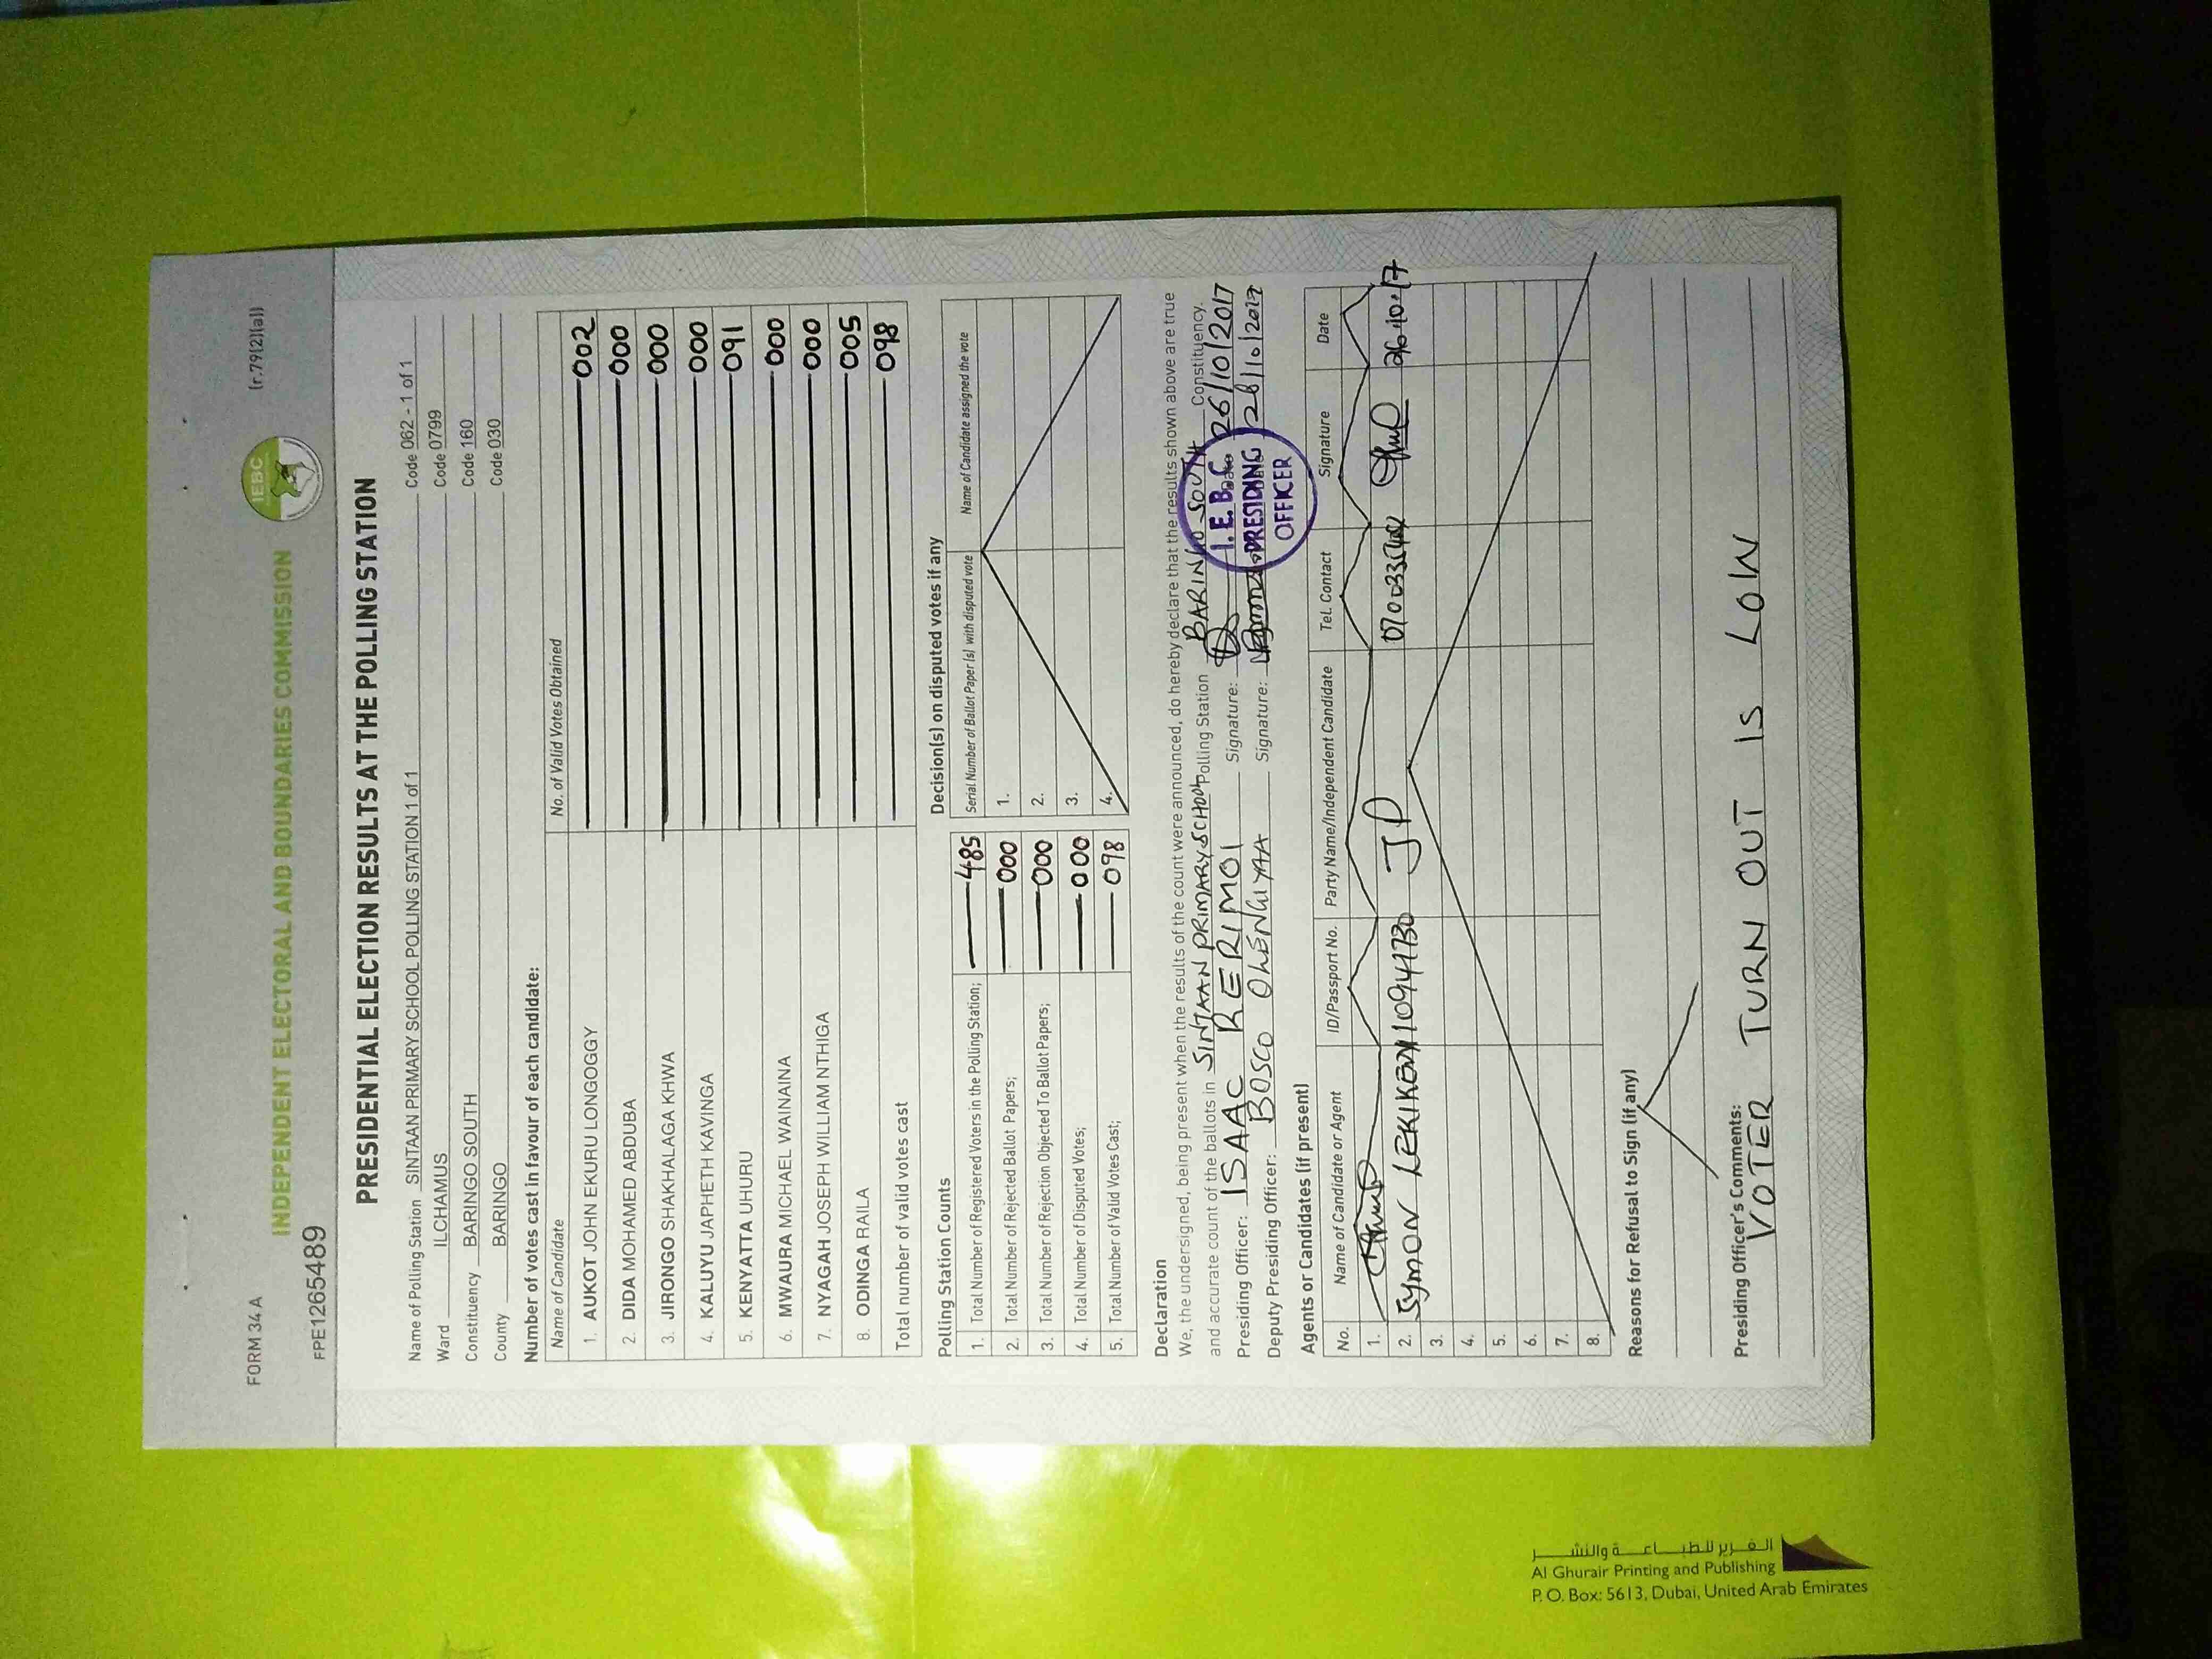 FORM 34 A
(r.79(2)(a))
IEBC
INDEPENDENT ELECTORAL AND BOUNDARIES COMMISSION
FPE1265489
PRESIDENTIAL ELECTION RESULTS AT THE POLLING STATION
Name of Polling Station SINTAAN PRIMARY SCHOOL POLLING STATION 1 of 1 Code 062 - 1 of 1
Ward ILCHAMUS Code 0799
Constituency BARINGO SOUTH Code 160
County BARINGO Code 030
Number of votes cast in favour of each candidate:
Name of Candidate No. of Valid Votes Obtained
1. AUKOT JOHN EKURU LONGOGGY 002
2. DIDA MOHAMED ABDUBA 000
3. JIRONGO SHAKHALAGA KHWA 000
4. KALUYU JAPHETH KAVINGA 000
5. KENYATTA UHURU 091
6. MWAURA MICHAEL WAINAINA 000
7. NYAGAH JOSEPH WILLIAM NTHIGA 000
8. ODINGA RAILA 005
Total number of valid votes cast 098
Polling Station Counts
1. Total Number of Registered Voters in the Polling Station; 485
2. Total Number of Rejected Ballot Papers; 000
3. Total Number of Rejection Objected To Ballot Papers; 000
4. Total Number of Disputed Votes; 000
5. Total Number of Valid Votes Cast; 098
Decision(s) on disputed votes if any
Serial Number of Ballot Paper(s) with disputed vote Name of Candidate assigned the vote
1.
2.
3.
4.
Declaration
We, the undersigned, being present when the results of the count were announced, do hereby declare that the results shown above are true
and accurate count of the ballots in SINTAAN PRIMARY SCHOOL Polling Station BARINGO SOUTH Constituency.
Presiding Officer: ISAAC RERIMOI Signature: Date 26/10/2017
Deputy Presiding Officer: BOSCO Signature: 26/10/2017
I.E.B.C
PRESIDING
OFFICER
Agents or Candidates (if present)
No. Name of Candidate or Agent ID/Passport No. Party Name/Independent Candidate Tel. Contact Signature Date
1.
2. SYMON 10941730 JP 26.10.17
3.
4.
5.
6.
7.
8.
Reasons for Refusal to Sign (if any)
Presiding Officer's Comments:
VOTER TURN OUT IS LOW
الغرير للطباعة والنشر
Al Ghurair Printing and Publishing
P. O. Box: 5613, Dubai, United Arab Emirates